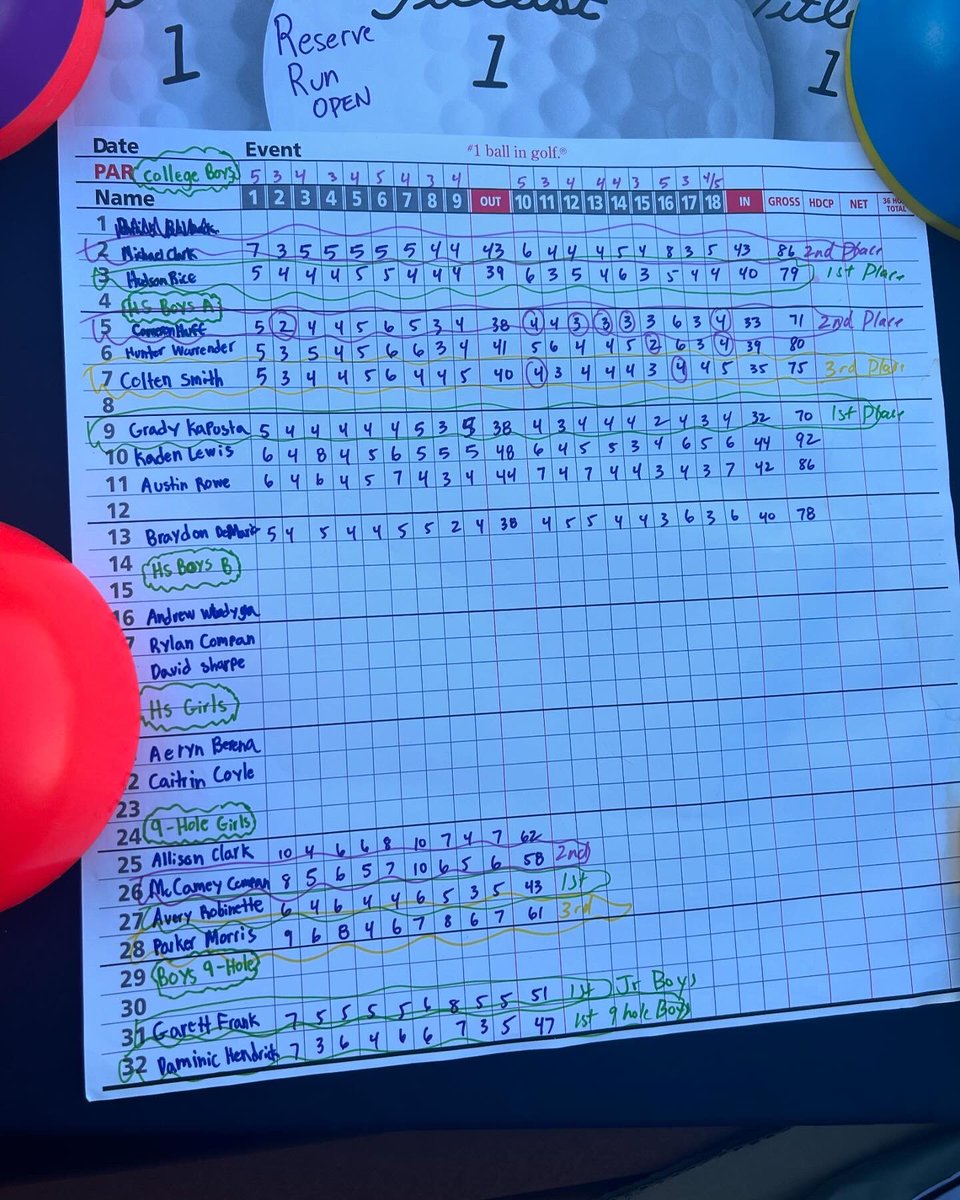 Titleist
1
1
1
Reserve
Run
OPEN
Date Event #1 ball in golf.®
PAR College Boys 5 3 4 3 4 5 4 3 4 5 3 4 4 4 3 5 3 4/5
Name 1 2 3 4 5 6 7 8 9 OUT 10 11 12 13 14 15 16 17 18 IN GROSS HDCP NET 36 HOLE TOTAL
1
2 Michael Clark 7 3 5 5 5 5 5 4 4 43 6 4 4 4 5 4 8 3 5 43 86 2nd Place
3 Hudson Rice 5 4 4 4 5 5 4 4 4 39 6 3 5 4 6 3 5 4 4 40 79 1st Place
4 HS Boys A
5 Cameron Huff 5 2 4 4 5 6 5 3 4 38 4 4 3 3 3 3 6 3 4 33 71 2nd Place
6 Hunter Warrender 5 3 5 4 5 6 6 3 4 41 5 6 4 4 5 2 6 3 4 39 80
7 Colten Smith 5 3 4 4 5 6 4 4 5 40 4 3 4 4 4 3 4 4 5 35 75 3rd Place
8
9 Grady Kaposta 5 4 4 4 4 4 5 3 5 38 4 3 4 4 4 2 4 3 4 32 70 1st Place
10 Kaden Lewis 6 4 8 4 5 6 5 5 5 48 6 4 5 5 3 4 6 5 6 44 92
11 Austin Rowe 6 4 6 4 5 7 4 3 4 44 7 4 7 4 4 3 4 3 7 42 86
12
13 Braydon 5 4 5 4 4 5 5 2 4 38 4 5 5 4 4 3 6 3 6 40 78
14 HS Boys B
15
16 Andrew
7 Rylan Compan
David Sharpe
HS Girls
Aeryn Berena
2 Caitrin Coyle
23
24 9-Hole Girls
25 Allison Clark 10 4 6 6 8 10 7 4 7 62
26 McCamey Compan 8 5 6 5 7 10 6 5 6 58 2nd
27 Avery Robinette 6 4 6 4 4 6 5 3 5 43 1st
28 Parker Morris 9 6 8 4 6 7 8 6 7 61 3rd
29 Boys 9-Hole
30
31 Garett Frank 7 5 5 5 5 6 8 5 5 51 1st Jr Boys
32 Daminic Hendrick 7 3 6 4 6 6 7 3 5 47 1st 9 hole Boys